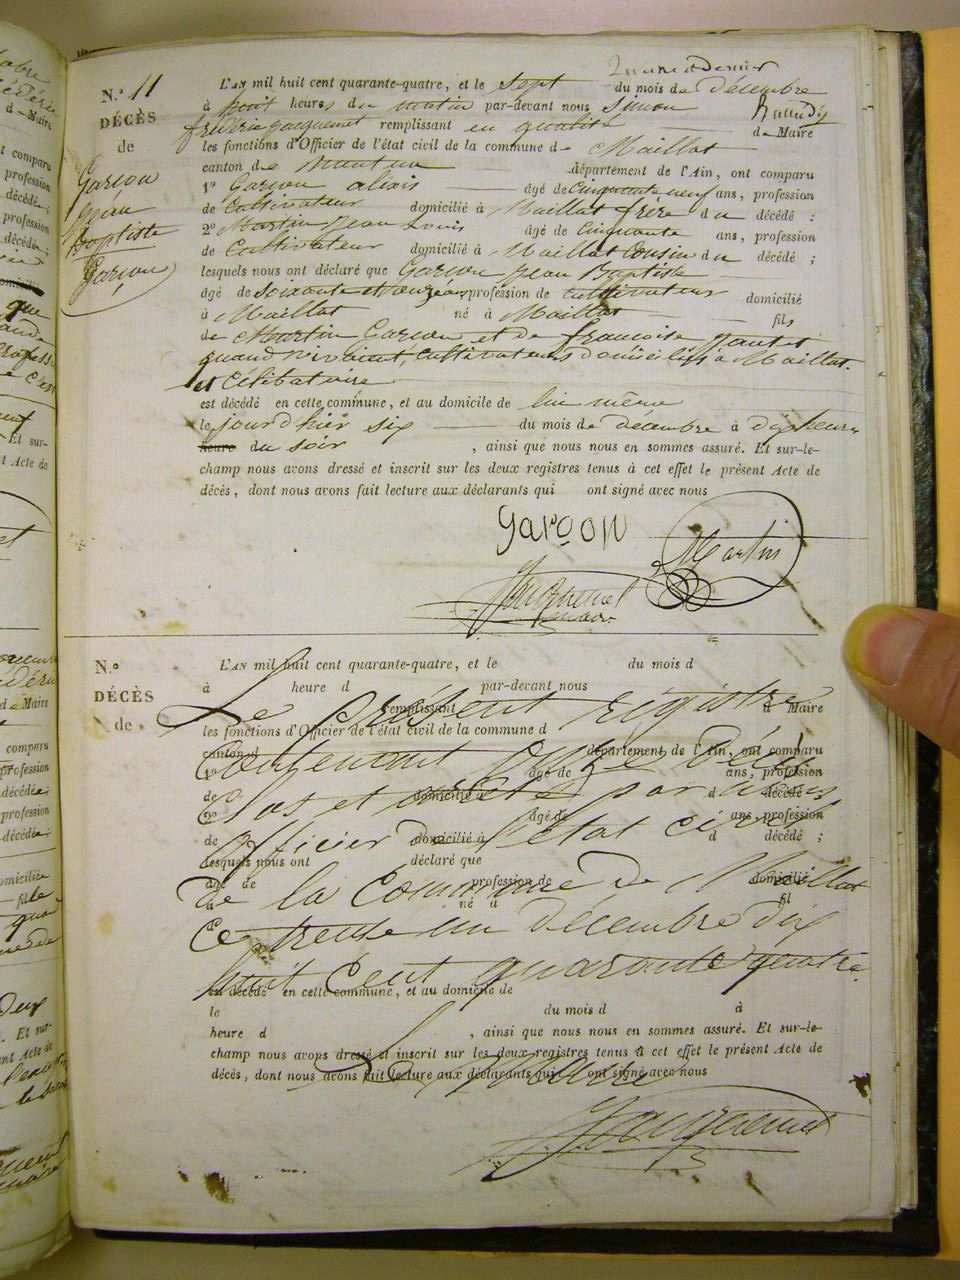 N.° 11
DÉCÈS
de
Garçon
Jean
Baptiste
Garçon
L'AN mil huit cent quarante-quatre, et le sept du mois de décembre
à heures du matin par-devant nous Simon
frédéric jacquemet remplissant en qualité de Maire
les fonctions d'Officier de l'état civil de la commune de Maillat
canton de nantua département de l'Ain, ont comparu
1° Garçon aliais âgé de cinquante neuf ans, profession
de Cultivateur domicilié à Maillat frère du décédé :
2° Martin Jean Louis âgé de cinquante ans, profession
de Cultivateur domicilié à Maillat Cousin du décédé ;
lesquels nous ont déclaré que Garçon jean Baptiste
âgé de soixante ans, profession de cultivateur domicilié
à Maillat né à Maillat fils
de Martin Garçon et de françoise
quand vivaient, cultivateurs domiciliés à Maillat.
et Célibataire
est décédé en cette commune, et au domicile de lui même
le jourd'hier six du mois de décembre à dix heures
heure du soir , ainsi que nous nous en sommes assuré. Et sur-le-
champ nous avons dressé et inscrit sur les deux registres tenus à cet effet le présent Acte de
décès, dont nous avons fait lecture aux déclarants qui ont signé avec nous
garçon Martin
Jacquemet
maire
N.°
DÉCÈS
de
L'AN mil huit cent quarante-quatre, et le du mois d
à heure d par-devant nous
Le présent registre
remplissant d Maire
les fonctions d'Officier de l'état civil de la commune d
canton d département de l'Ain, ont comparu
Contenant onze décès
1° âgé de ans, profession
de domicilié à d décédé :
clos et arrêté par nous
2° âgé de ans, profession
officier de l'état civil
de domicilié à d décédé ;
lesquels nous ont déclaré que
âgé de profession de domicilié
de la Commune de Maillat
à né à fil
Ce trente un décembre dix
huit Cent quarante quatre.
est décédé en cette commune, et au domicile de
le du mois d à
heure d , ainsi que nous nous en sommes assuré. Et sur-le-
champ nous avons dressé et inscrit sur les deux registres tenus à cet effet le présent Acte de
décès, dont nous avons fait lecture aux déclarants qui ont signé avec nous
Le Maire
Jacquemet